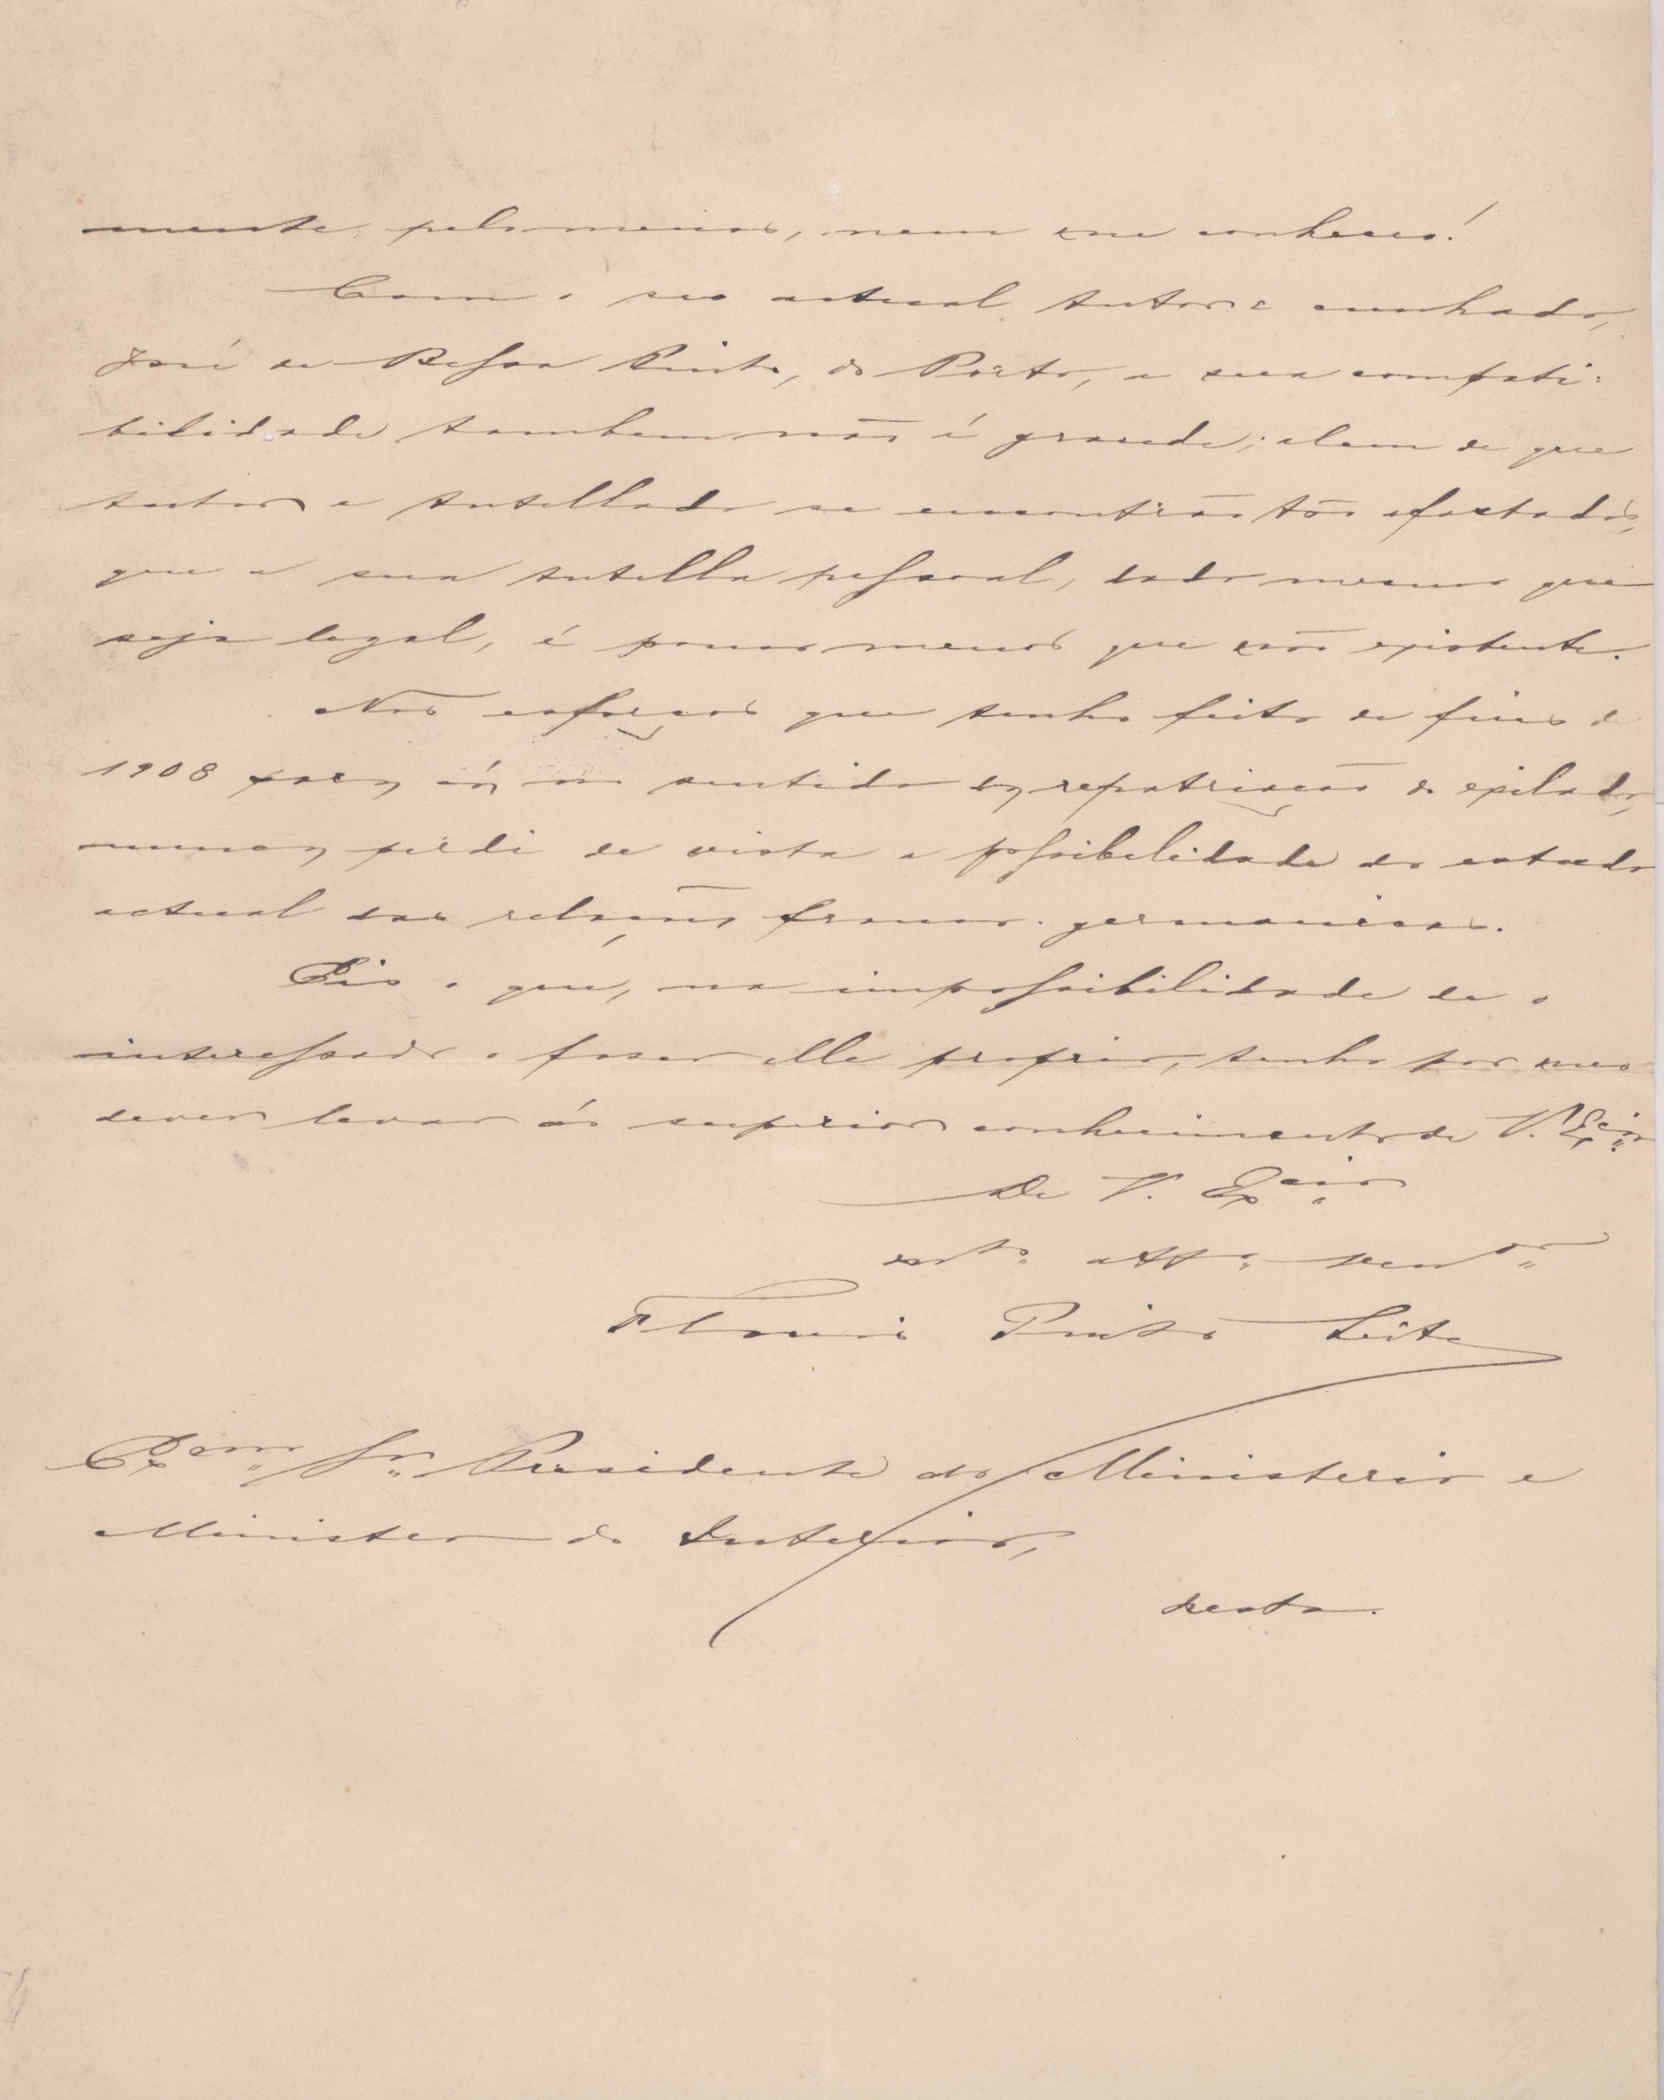 mente, pelo menos, nem me conheceo!
Com o seo actual tutor e cunhado,
José de Bessa Pinto, do Porto, a sua compati-
bilidade tambem não é grande; alem de que
tutor e tutellado se encontrão tão afastados,
que a sua tutella pessoal, dado mesmo que
seja legal, é pouco menos que não existente.
Nos esforços que tenho feito de fins de
1908 para cá, no sentido da repatriação do exilado,
nunca perdi de vista a possibilidade do estado
actual das relações franco-germanicas.
Eis o que, na impossibilidade de o
interessado o fazer elle proprio, tenho por meo
dever levar ao superior conhecimento de V. Excia.
De V. Excia.
mto. atto. venor.
Flavio Pinto Leite
Exmo. Sr. Presidente do Ministerio e
Ministro do Interior,
desta.